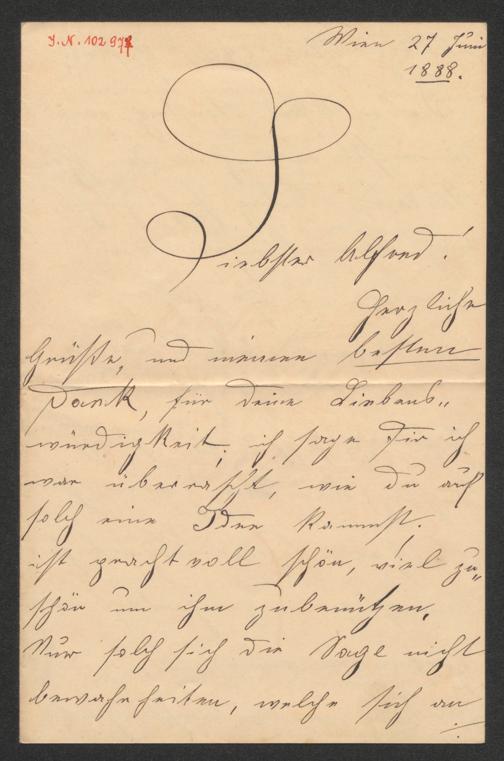 J. N. 102 977
Wien 27 Juni
1888.
Liebster Alfred!
Herzliche
Grüße, und meinen besten
Dank, für deine Liebens„
würdigkeit; ich sage Dir ich
war überrascht, wie du auf
solch eine Idee kammst.
ist prachtvoll schön, viel zu„
schön um ihn zubenützen.
Nur solch sich die Sage nicht
bewahrheiten, welche sich an